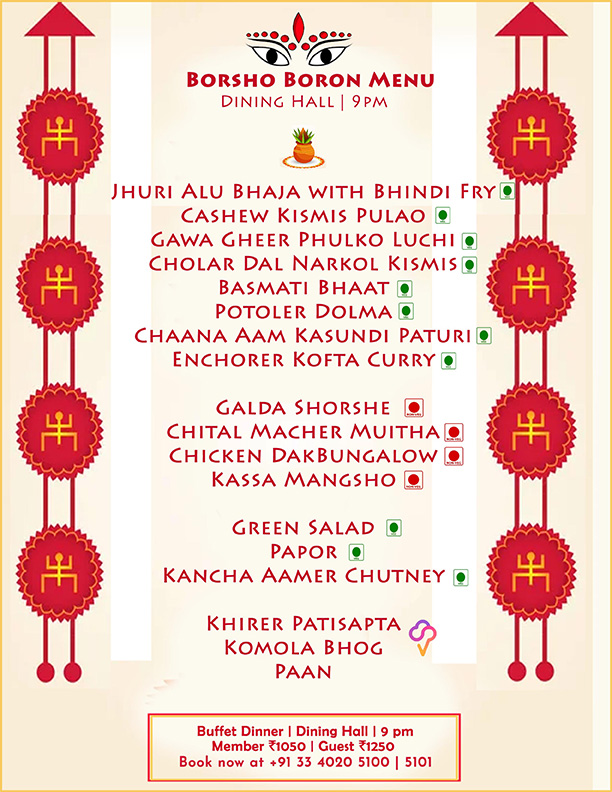 Borsho Boron Menu
Dining Hall | 9pm
Jhuri Alu Bhaja with Bhindi Fry
Cashew Kismis Pulao
Gawa Gheer Phulko Luchi
Cholar Dal Narkol Kismis
Basmati Bhaat
Potoler Dolma
Chaana Aam Kasundi Paturi
Enchorer Kofta Curry
Galda Shorshe
Chital Macher Muitha
Chicken DakBungalow
Kassa Mangsho
Green Salad
Papor
Kancha Aamer Chutney
Khirer Patisapta
Komola Bhog
Paan
Buffet Dinner | Dining Hall | 9 pm
Member ₹1050 | Guest ₹1250
Book now at +91 33 4020 5100 | 5101